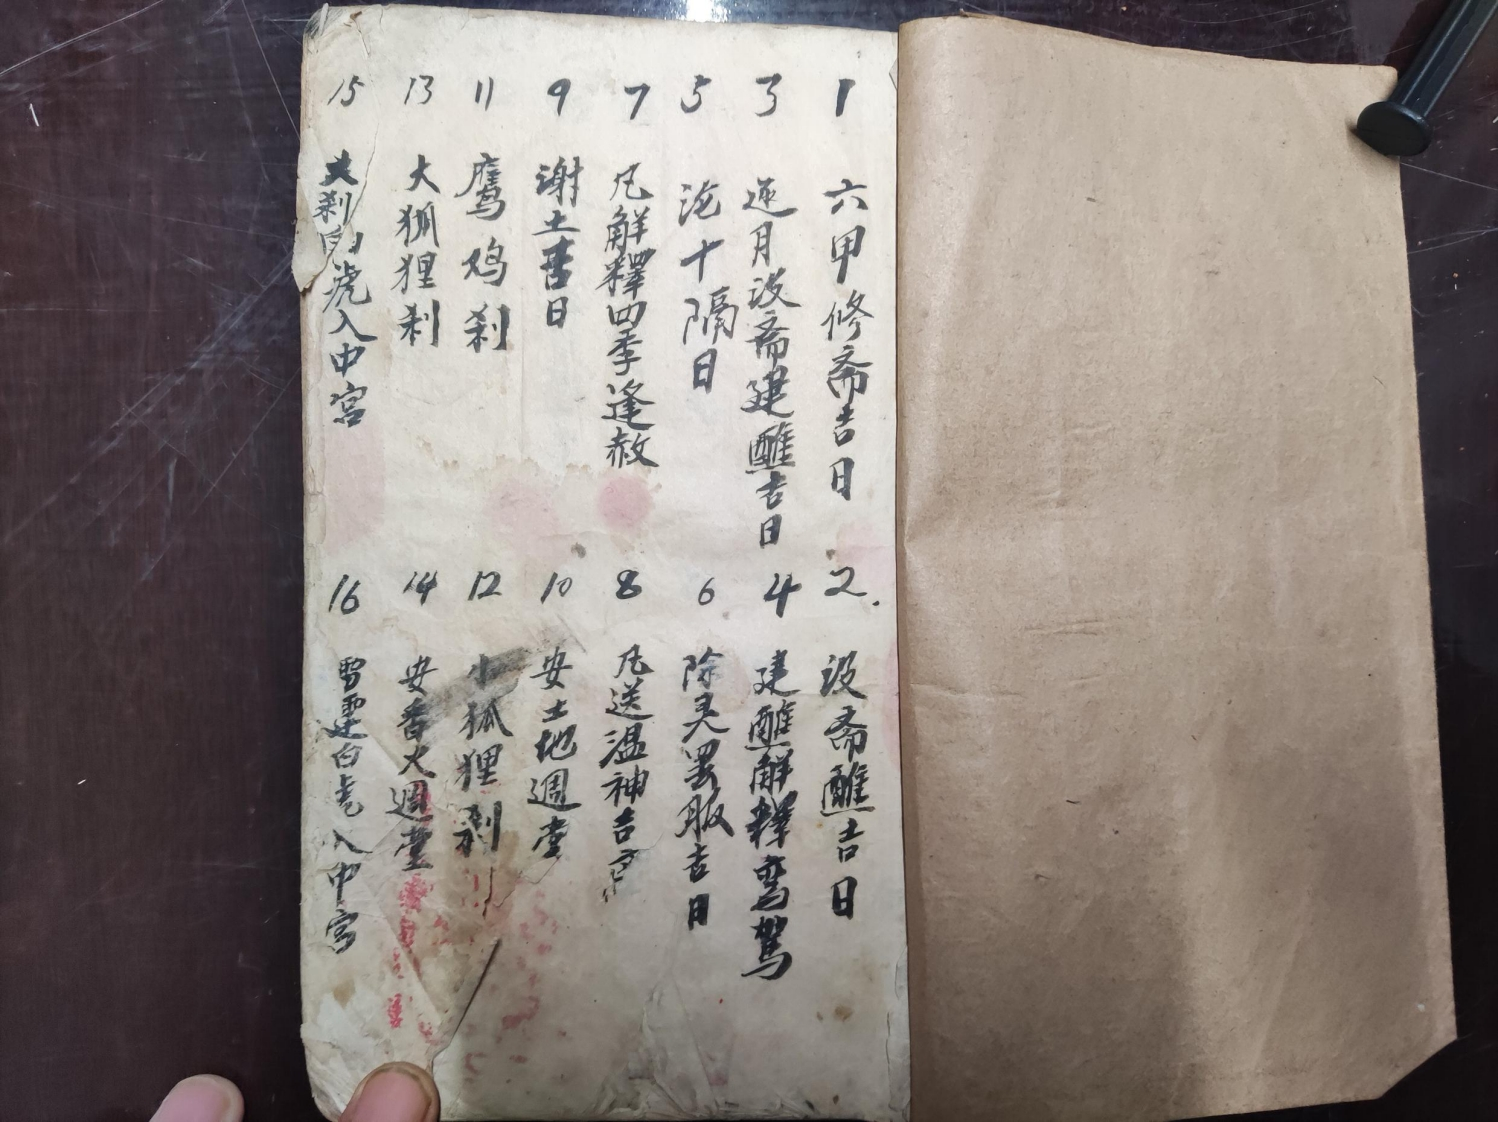 1 六甲修斋吉日
2. 设斋醮吉日
3 逐月设斋建醮吉日
4 建醮解釋鸾駕
5 论十隔日
6 除灵罢服吉日
7 凡解釋四季逢赦
8 凡送温神吉
9 谢土吉日
10 安土地週堂
11 鹰鸡刹
12 小狐狸刹
13 大狐狸刹
14 安香火週堂
15 刹白虎入中宫
16 雷霆白虎入中宫